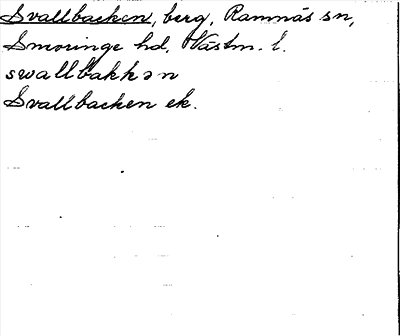 Svallbacken, berg, Ramnäs sn,
Snevringe hd, Västm. l.
swallbakkən
Svallbacken ek.